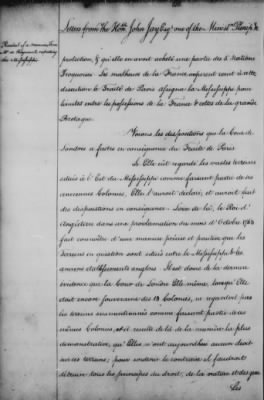 Letters from the Honble. John Jay Esqr. one of the Ministrs. Plenipo. &c
Recital of a memoire from
Mr. de Rayneval respecting
the Mississippi
protection, & qu'elle en avoit acheté une partie des 5 Nations
Iroquoises. Les malheurs de la France aiderent cette
discution: le Traité de Paris assigna le Mississippi pour
limites entre les possessions de la France & celles de la grande
Bretagne.
Voions les dispositions que la Cour de
Londres a faites en conséquence du Traité de Paris
Si Elle eut regardé les vastes terreins
situés à l'Est du Mississippi comme faisant partie de ses
anciennes Colonies, Elle l'auroit déclaré, et auroit fait
des dispositions en conséquence. Loin de là, le Roi d'
Angleterre dans une proclamation du mois d'Octobre 1763
fait connoître d'une manière précise et positive que les
terreins en question sont situés entre le Mississippi & les
anciens établissements anglois. Il est donc de la dernière
evidence que la Cour de Londre Elle même, lorsqu'Elle
étoit encore souveraine des 13 Colonies, ne regardoit pas
les terreins susmentionnés comme faisant partie de ces
mêmes Colonies, et il resulte de là de la manière la plus
demonstrative, qu'Elles n'ont aujourd'hui aucun droit
sur ces terreins; pour soutenir le contraire il faudroit
détruire tous les principes du droit, de la nature et des gens
Les